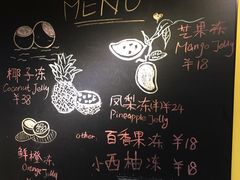 MENU
芒果冻
Mango Jelly
¥18
椰子冻
Coconut Jelly
¥38
凤梨冻
Pineapple Jelly
鲜橙冻
Orange Jelly
other
百香果冻 ¥18
小西柚冻 ¥18